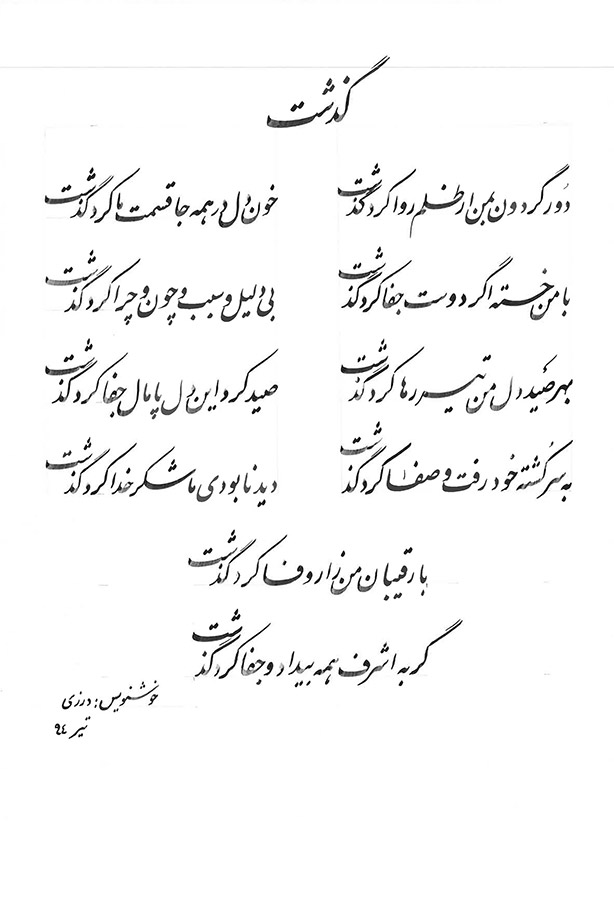 گذشت
دور گردون بمن ار ظلم روا کرد گذشت
خون دل در همه جا قسمت ما کرد گذشت
با من خسته اگر دوست جفا کرد گذشت
بی دلیل و سبب و چون و چرا کرد گذشت
بهر صید دل من تیر رها کرد گذشت
صید کرد این دل پامال جفا کرد گذشت
به سر کشته خود رفت و صفا کرد گذشت
دید نابودی ما شکر خدا کرد گذشت
با رقیبان من زار وفا کرد گذشت
گر به اشرف همه بیداد و جفا کرد گذشت
خوشنویس: درزی
تیر ۹۴